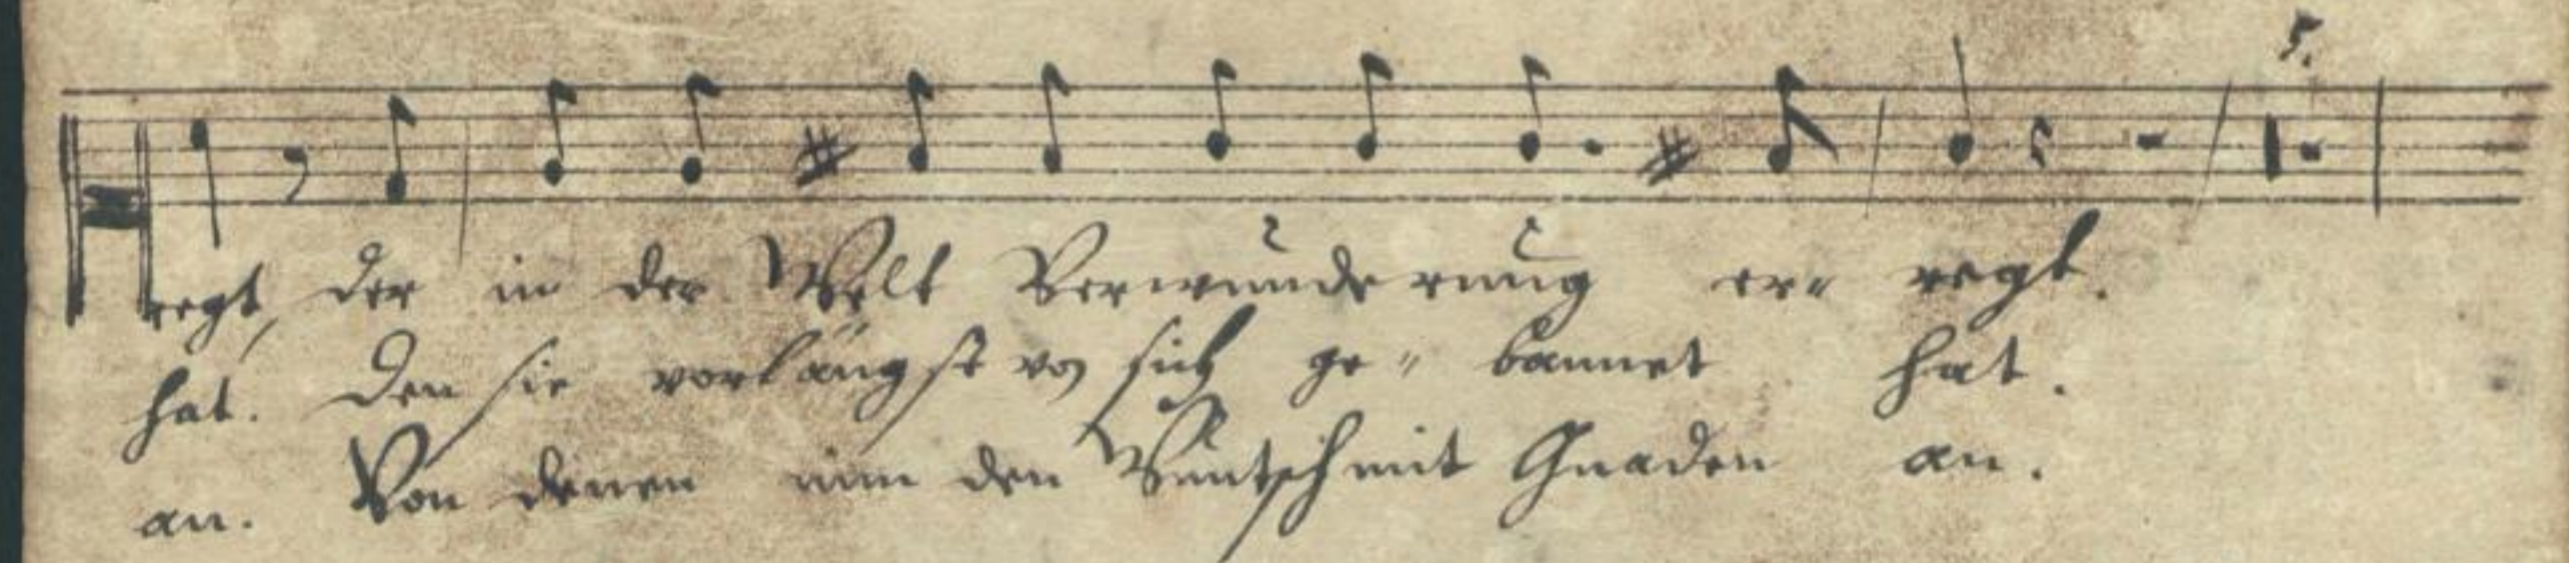 5.
regt, der in der Welt Verwunderung er- regt.
hat. Den sie vorlängst von sich ge- bannet hat.
an. Von denen nim den Wuntsch mit Gnaden an.